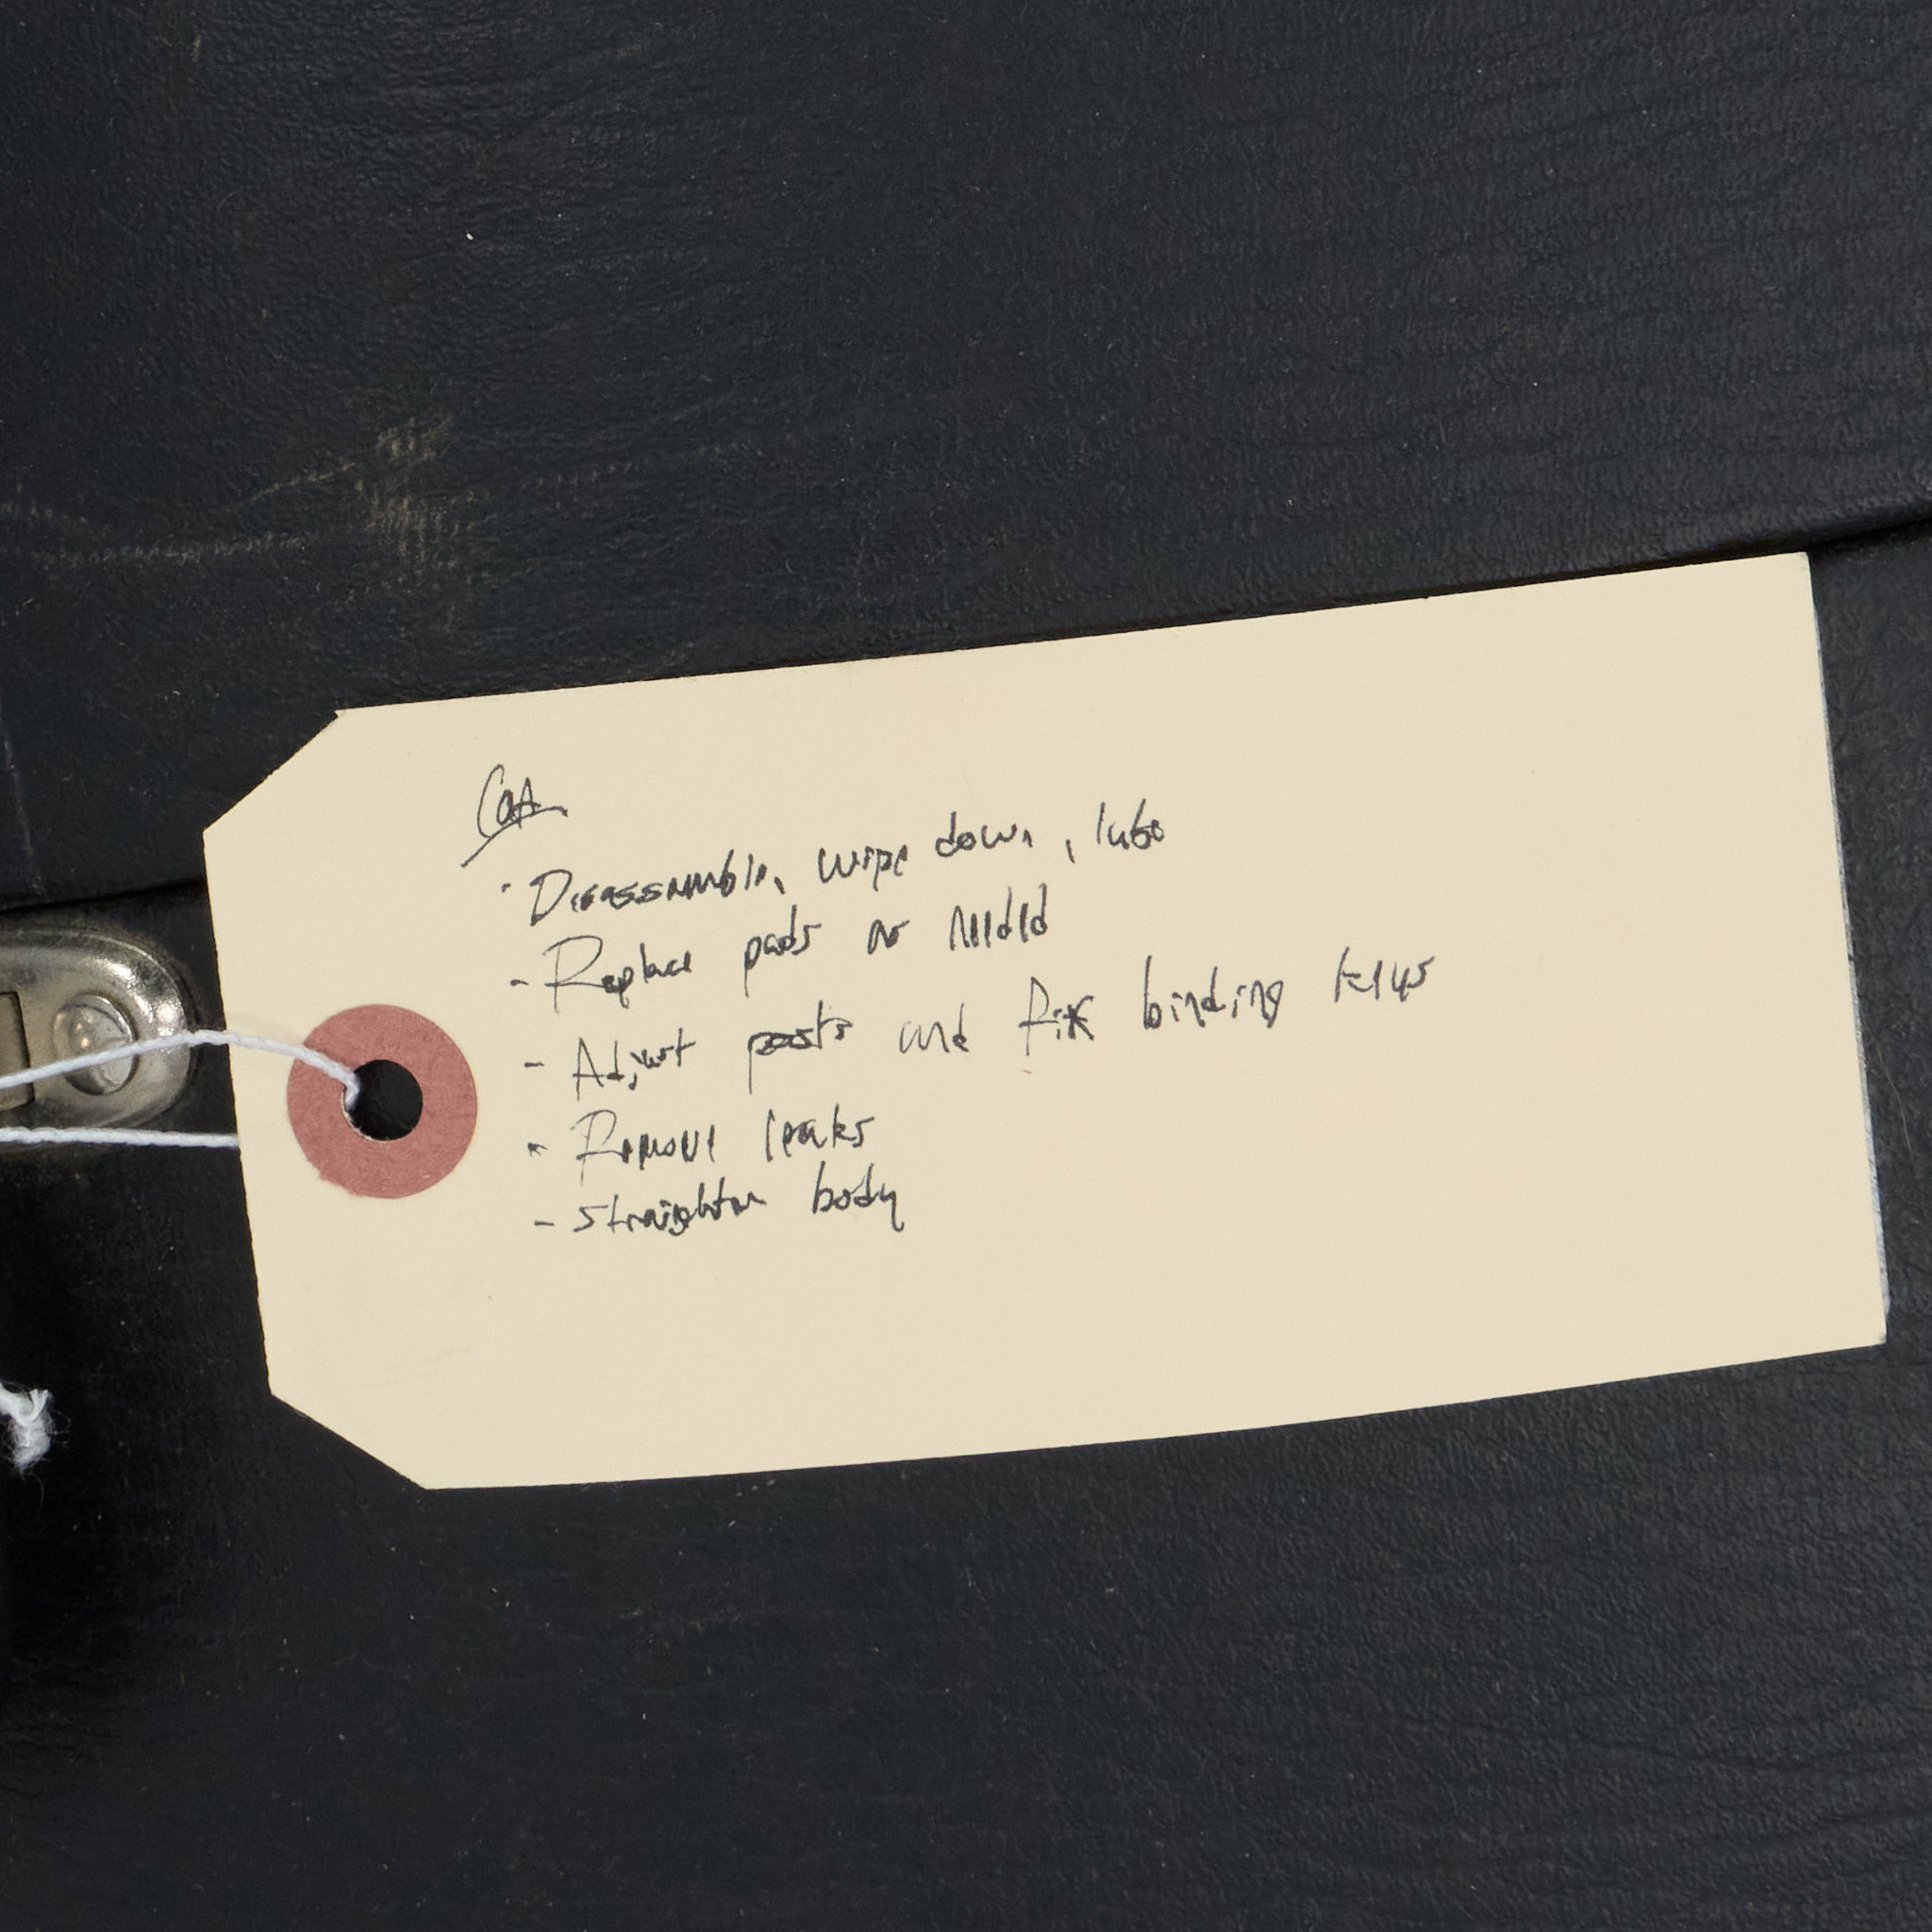 COA
- Disassemble, wipe down, lube
- Replace pads as needed
- Adjust posts and fix binding keys
- Remove leaks
- Straighten body